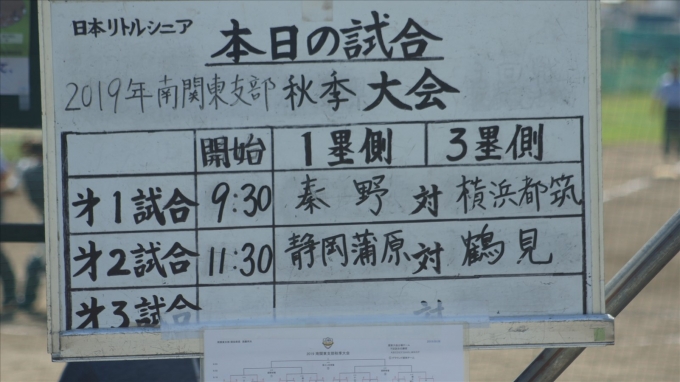 日本リトルシニア
本日の試合
2019年南関東支部 秋季 大会
開始 1塁側 3塁側
才1試合 9:30 秦野 対 横浜都筑
才2試合 11:30 静岡蒲原 対 鶴見
才3試合 対